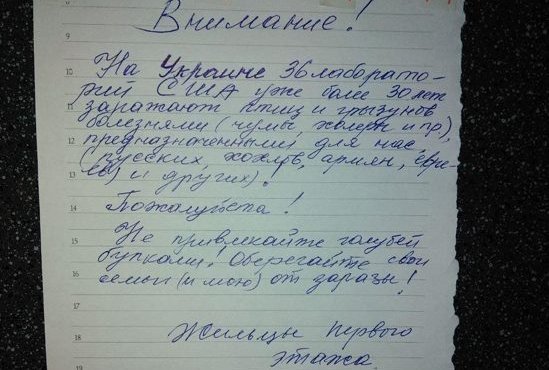 Внимание!
На Украине 36 лаборато-
рий США уже более 30 лет
заражают птиц и грызунов
болезнями (чумы, холеры и пр),
предназначенными для нас,
(русских, хохлов, ариян, евре-
ев) и других)!
Пожалуйста!
Не привлекайте голубей
булками! Оберегайте свои
семьи (и мою) от заразы!
Жильцы первого
этажа.